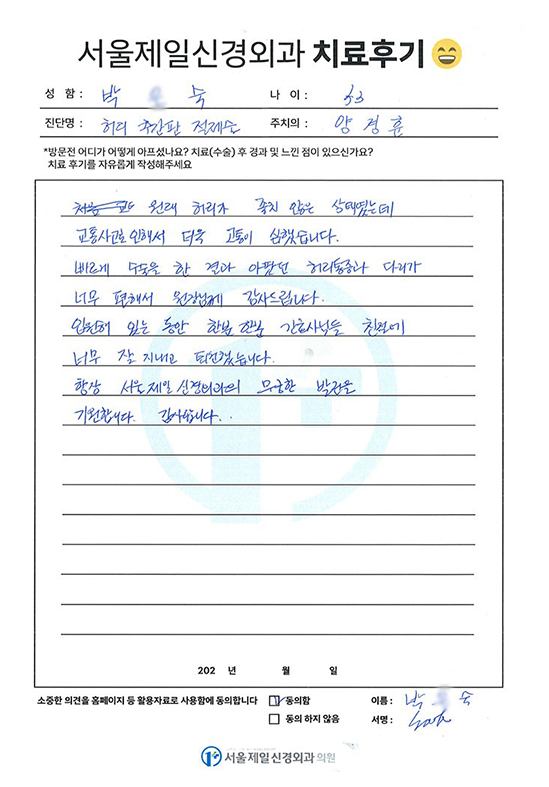 서울제일신경외과 치료후기
성 함 : 박 숙 나 이 : 53
진단명 : 허리 추간판 절제술 주치의 : 양 경 훈
*방문전 어디가 어떻게 아프셨나요? 치료(수술) 후 경과 및 느낀 점이 있으신가요?
치료 후기를 자유롭게 작성해주세요
원래? 허리가 좋지 않은 상태였는데
교통사고로 인해서 더욱 고통이 심했습니다.
빠르게 수술을 한 결과 아팠던 허리통증과 다리가
너무 편해서 원장님께 감사드립니다.
입원해 있는 동안 한분 한분 간호사님들 친절에
너무 잘 지내고 퇴원했습니다.
항상 서울제일신경외과의 무궁한 발전을
기원합니다. 감사합니다..
202 년 월 일
소중한 의견을 홈페이지 등 활용자료로 사용함에 동의합니다 동의함 이름 : 박 숙
동의 하지 않음 서명 :
서울제일신경외과의원